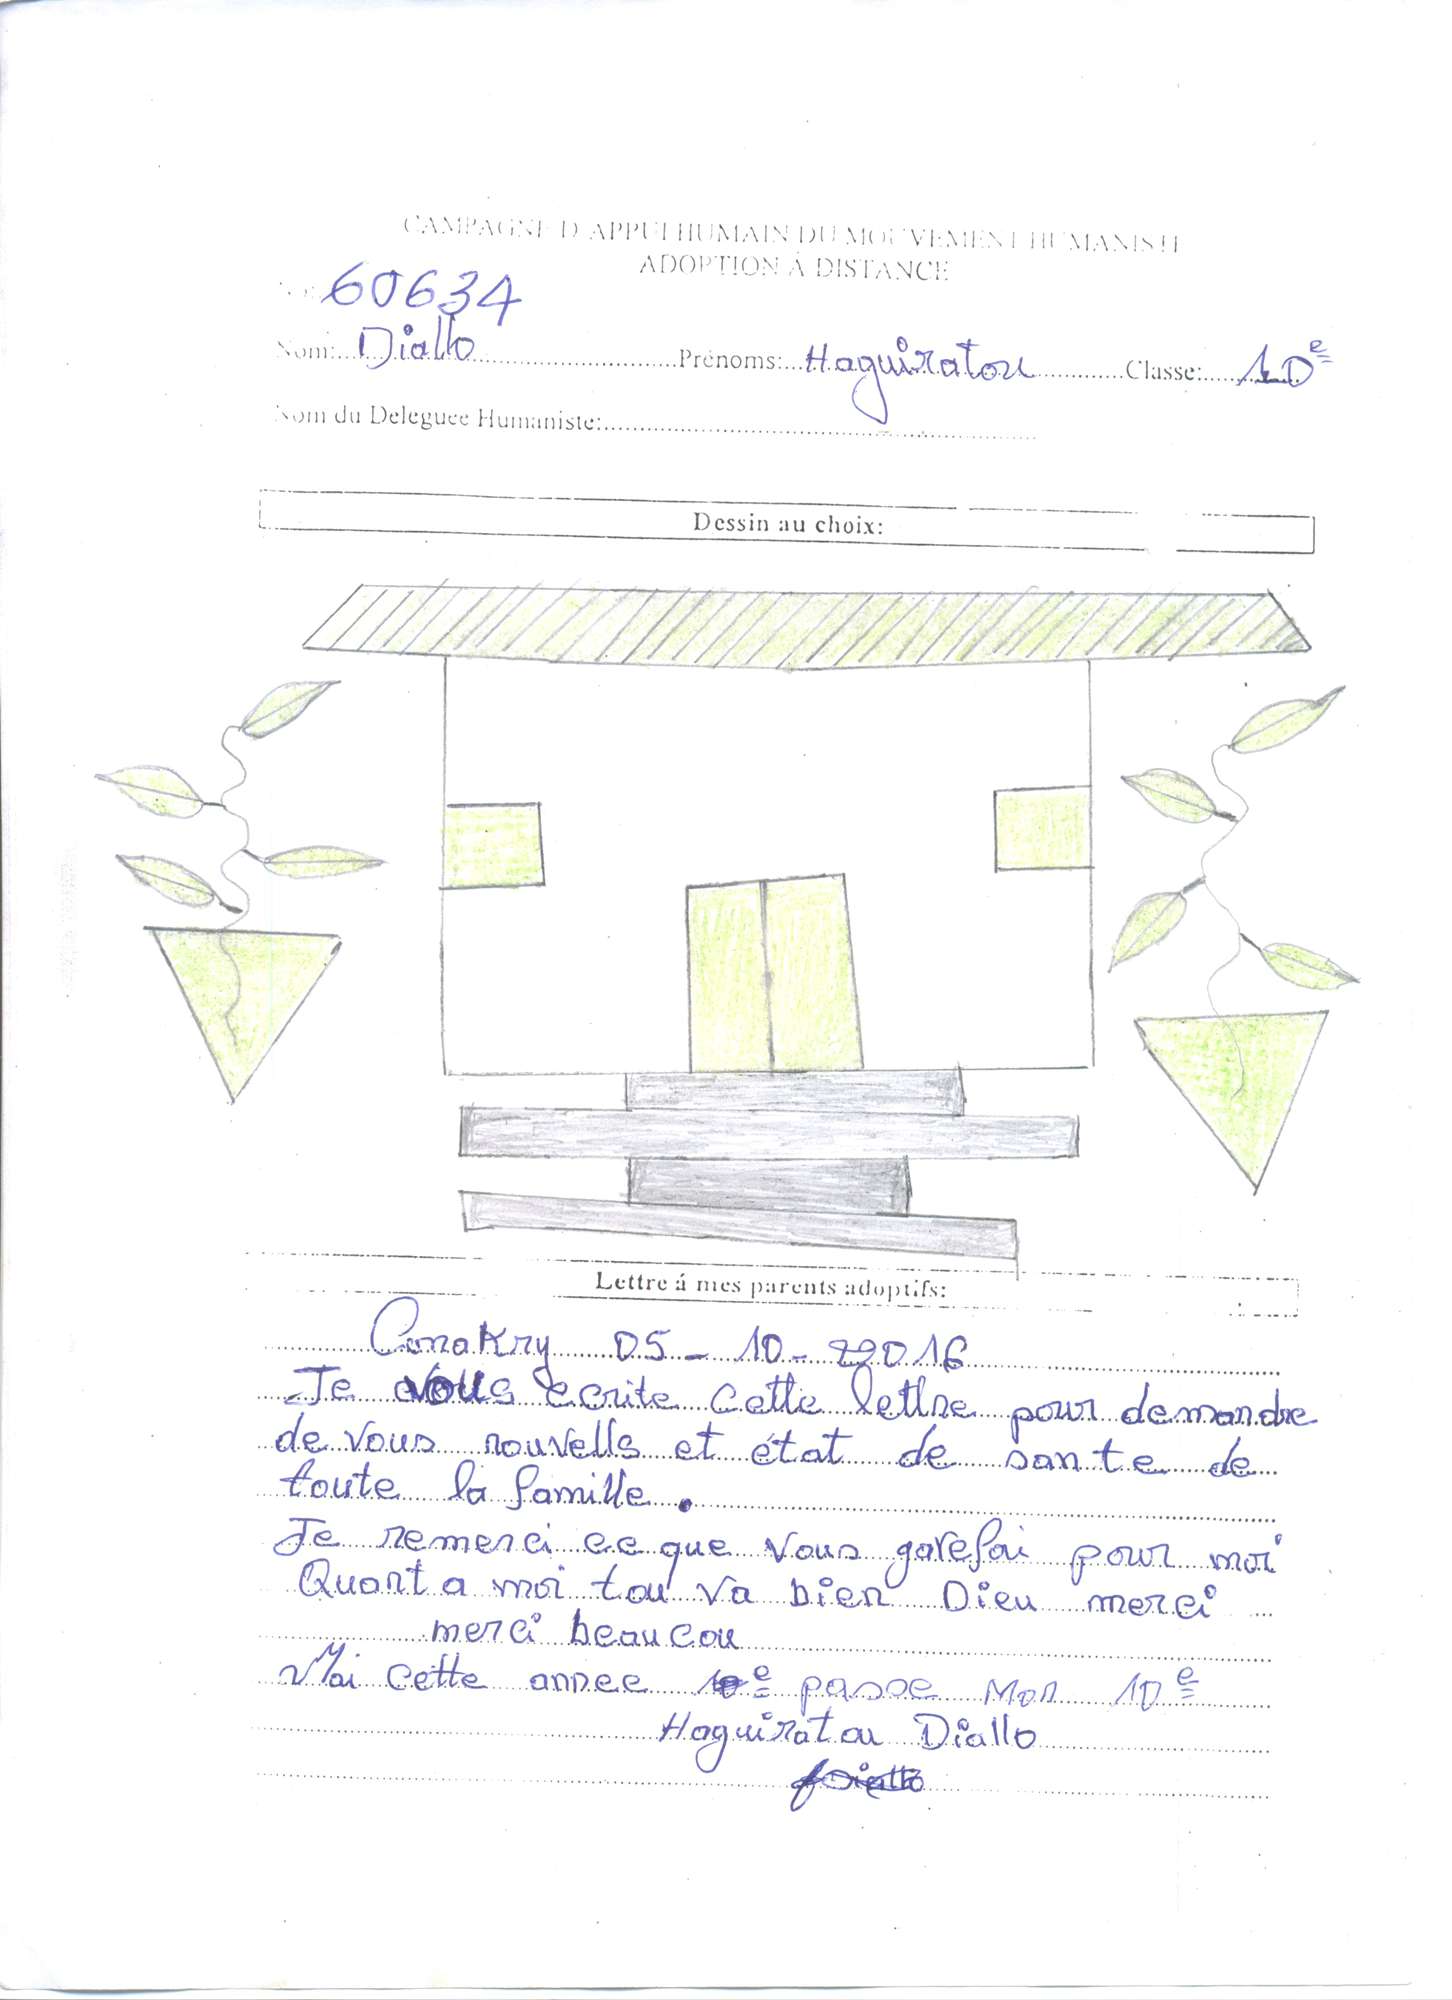 CAMPAGNE D'APPUI HUMAIN DU MOUVEMENT HUMANISTE
ADOPTION À DISTANCE
No: 60634
Nom: Diallo Prénoms: Haguiratou Classe: 10e
Nom du Deleguee Humaniste:
Dessin au choix:
Lettre á mes parents adoptifs:
Conakry 05 - 10 - 2016
Je vous ecrite cette lettre pour demandre
de vous nouvells et état de sante de
toute la famille.
Je remerci ce que vous gavefai pour moi
Quant a moi tou va bien Dieu merci
merci beaucou
Moi cette annee 10e passe Mon 10e
Haguiratou Diallo
Diallo